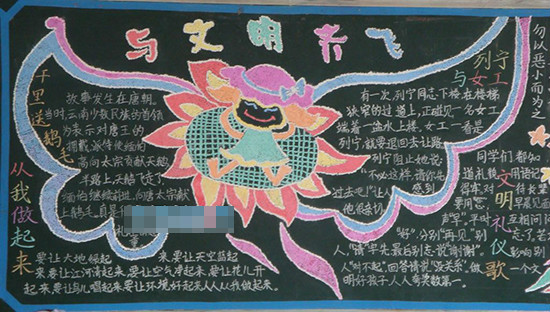 与文明齐飞
千里送鹅毛
故事发生在唐朝。
当时，云南少数民族的首领
为表示对唐王的
拥戴，派特使缅伯
高向太宗贡献天鹅
半路上，天鹅飞走，
缅伯继续前进，向唐太宗献
上鹅毛，真是
从我做起
来要让大地绿起 来要让天空蓝起
来要让江河清起来，要让空气净起来，要让花儿开
起来，要让鸟儿唱起来，要让环境好起来人人从我做起来。
列宁与女工
有一次，列宁同志下楼，在楼梯
狭窄的过道上，正碰见一名女工
端着一盆水上楼。女工一看是
列宁，就要退回去让路。
列宁阻止她说：
“不必这样，请你先
过去吧！”让人感到
他很亲切
勿以恶小而为之
文明礼仪歌
同学们都知
道礼貌用语记
得牢
见面
声“早”，平时
互相问
“好”，分别“再见”别
忘了
人，“请”字先，最后别忘说“谢谢”。
影响别
人“对不起”，回答请说“没关系”，做
一个文
明好孩子人人夸奖数第一。